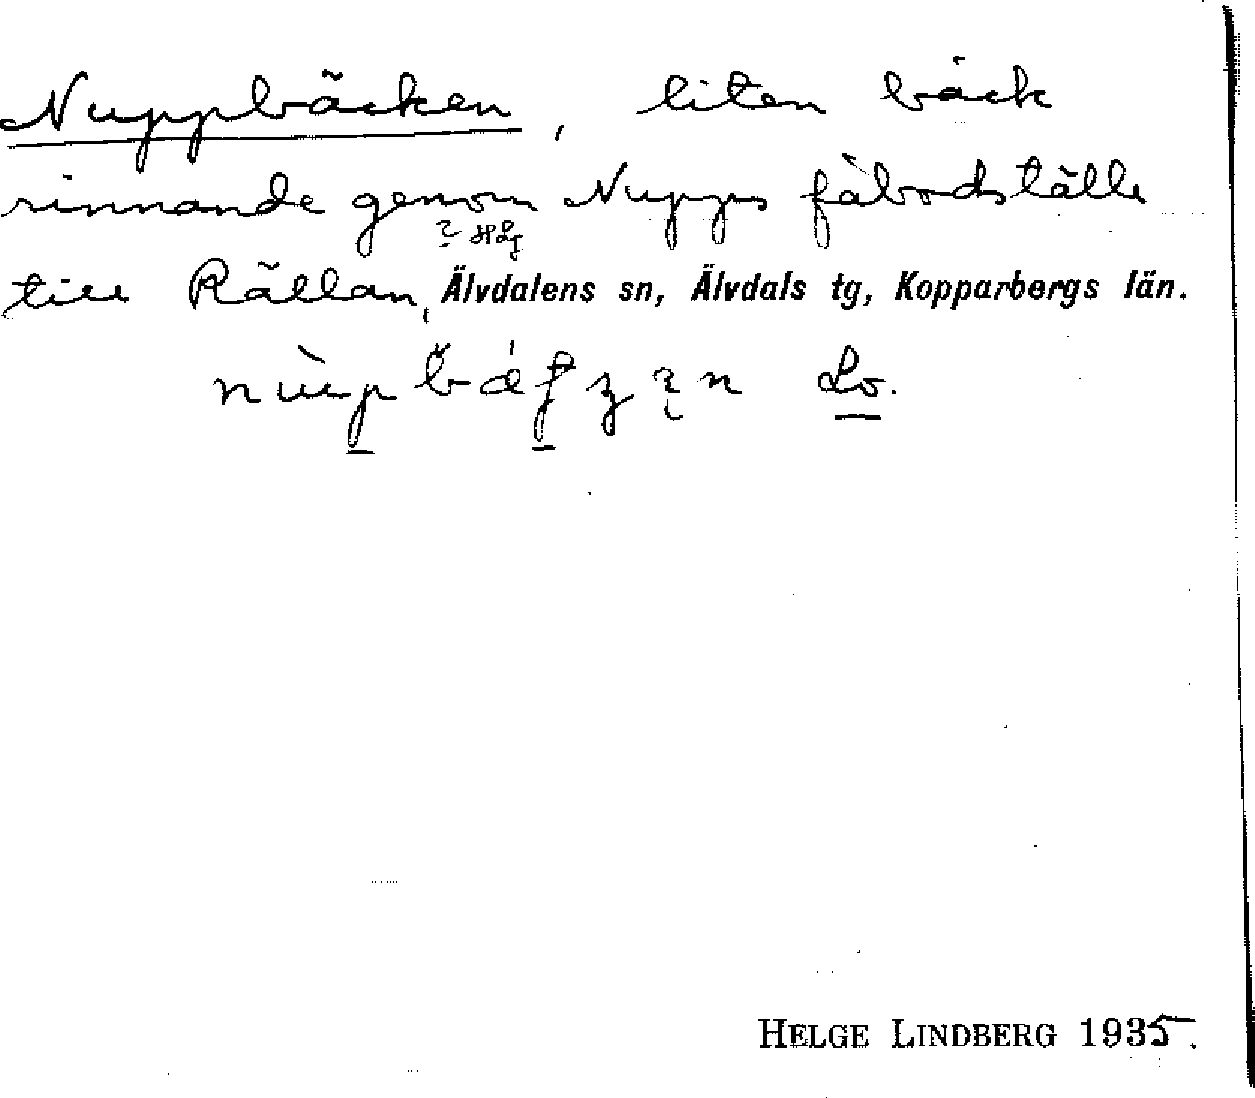 Nuppbäcken, liten bäck
rinnande genom Nupps fäbodställe
? HLg
till Rällan, Älvdalens sn, Älvdals tg, Kopparbergs län.
Lo.
HELGE LINDBERG 1935.